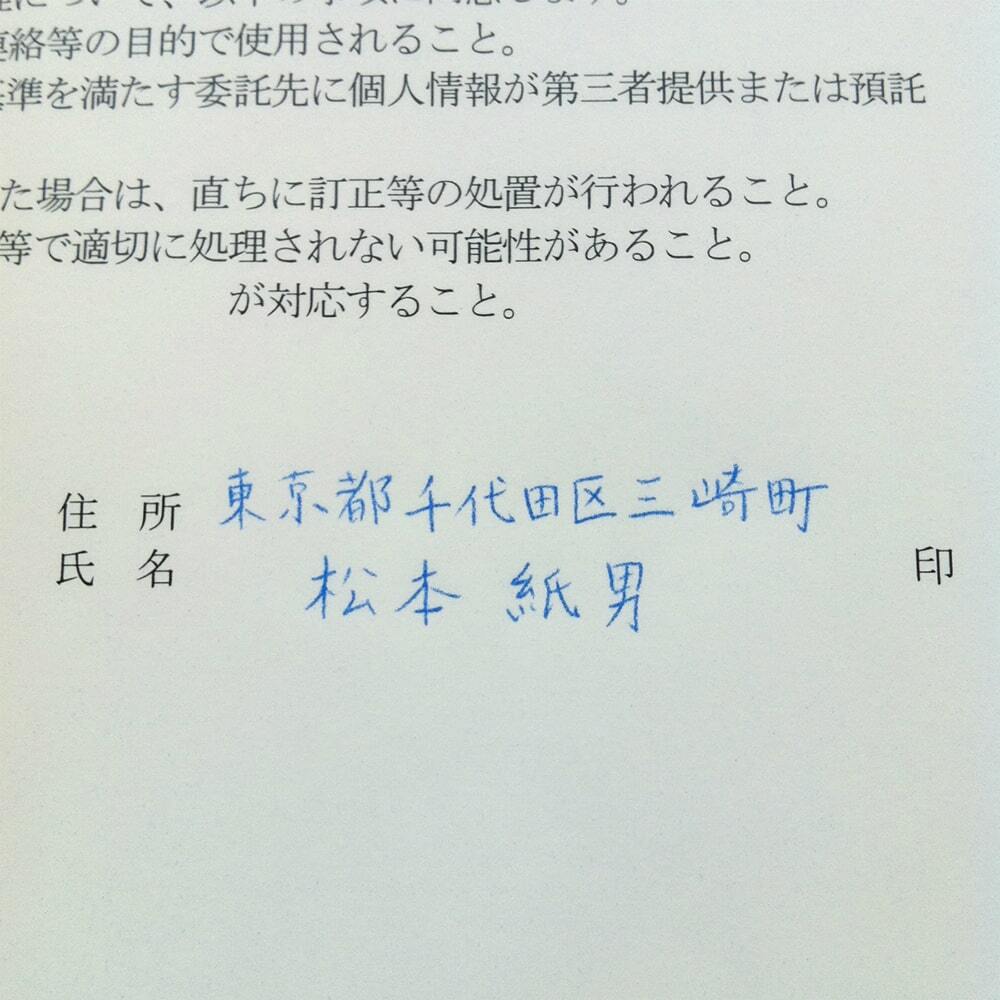 について、以下の事項に同意します。
連絡等の目的で使用されること。
基準を満たす委託先に個人情報が第三者提供または預託
た場合は、直ちに訂正等の処置が行われること。
等で適切に処理されない可能性があること。
が対応すること。
住 所 東京都千代田区三崎町
氏 名 松本 紙男 印